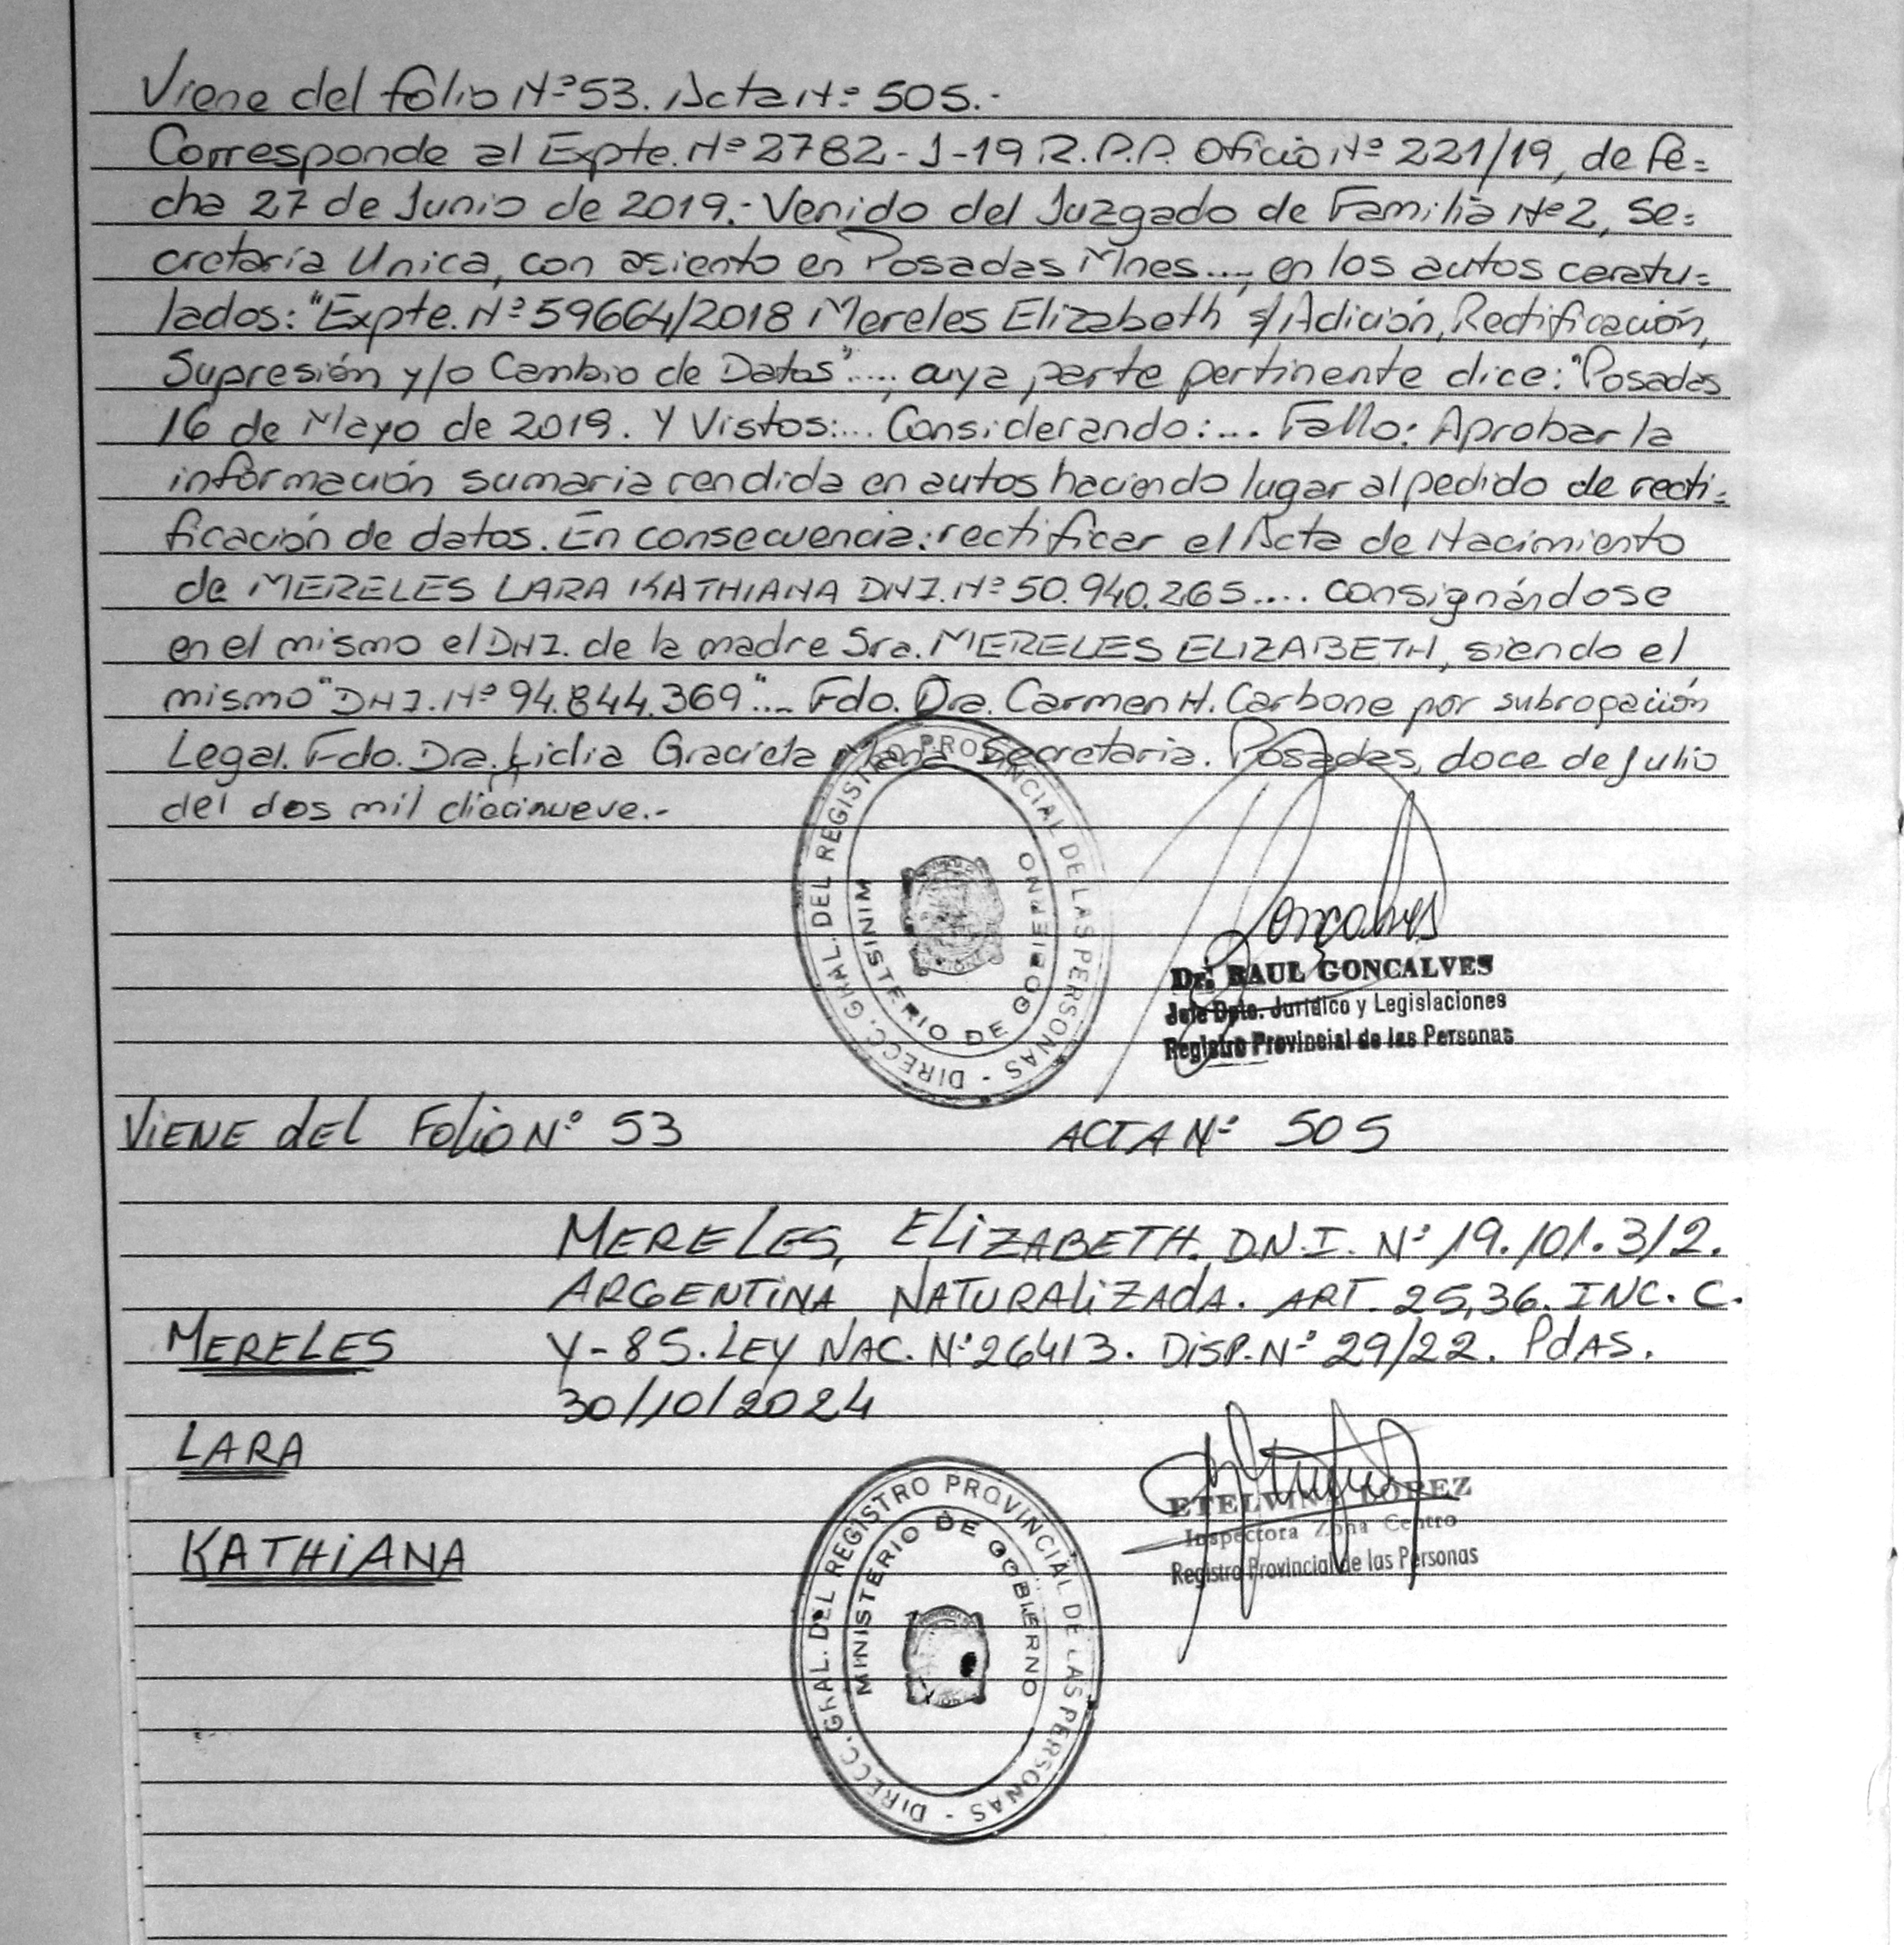 Viene del folio Nº 53. Acta Nº 505.-
Corresponde al Expte. Nº 2782-J-19 R.P.P. Oficio Nº 221/19, de fe=
cha 27 de Junio de 2019.- Venido del Juzgado de Familia Nº 2, Se=
cretaría Unica, con asiento en Posadas Mnes..., en los autos caratu=
lados: "Expte. Nº 59664/2018 Mereles Elizabeth s/Adición, Rectificación,
Supresión y/o Cambio de Datos"...., cuya parte pertinente dice: "Posadas
16 de Mayo de 2019. Y Vistos:... Considerando:... Fallo: Aprobar la
información sumaria rendida en autos haciendo lugar al pedido de recti=
ficación de datos. En consecuencia: rectificar el Acta de Nacimiento
de MERELES LARA KATHIANA DNI. Nº 50.940.265.... consignándose
en el mismo el DNI. de la madre Sra. MERELES ELIZABETH, siendo el
mismo "DNI. Nº 94.844.369"... Fdo. Dra. Carmen H. Carbone por subrogación
Legal. Fdo. Dra. Lidia Graciela Secretaria. Posadas, doce de Julio
del dos mil diecinueve.-
DIRECC. GRAL. DEL REGISTRO PROVINCIAL DE LAS PERSONAS -
MINISTERIO DE GOBIERNO
Goncalves
Dr. RAUL GONCALVES
Jefe Dpto. Jurídico y Legislaciones
Registro Provincial de las Personas
VIENE del Folio Nº 53 ACTA Nº 505
MERELES, ELIZABETH. D.N.I. Nº 19.101.312.
ARGENTINA NATURALIZADA. ART. 25,36. INC. C.
MERELES Y-85. LEY NAC. Nº 26413. DISP. Nº 29/22. PdAS.
30/10/2024
LARA
KATHIANA
DIRECC. GRAL. DEL REGISTRO PROVINCIAL DE LAS PERSONAS -
MINISTERIO DE GOBIERNO
ETELVINA LOPEZ
Inspectora Zona Centro
Registro Provincial de las Personas